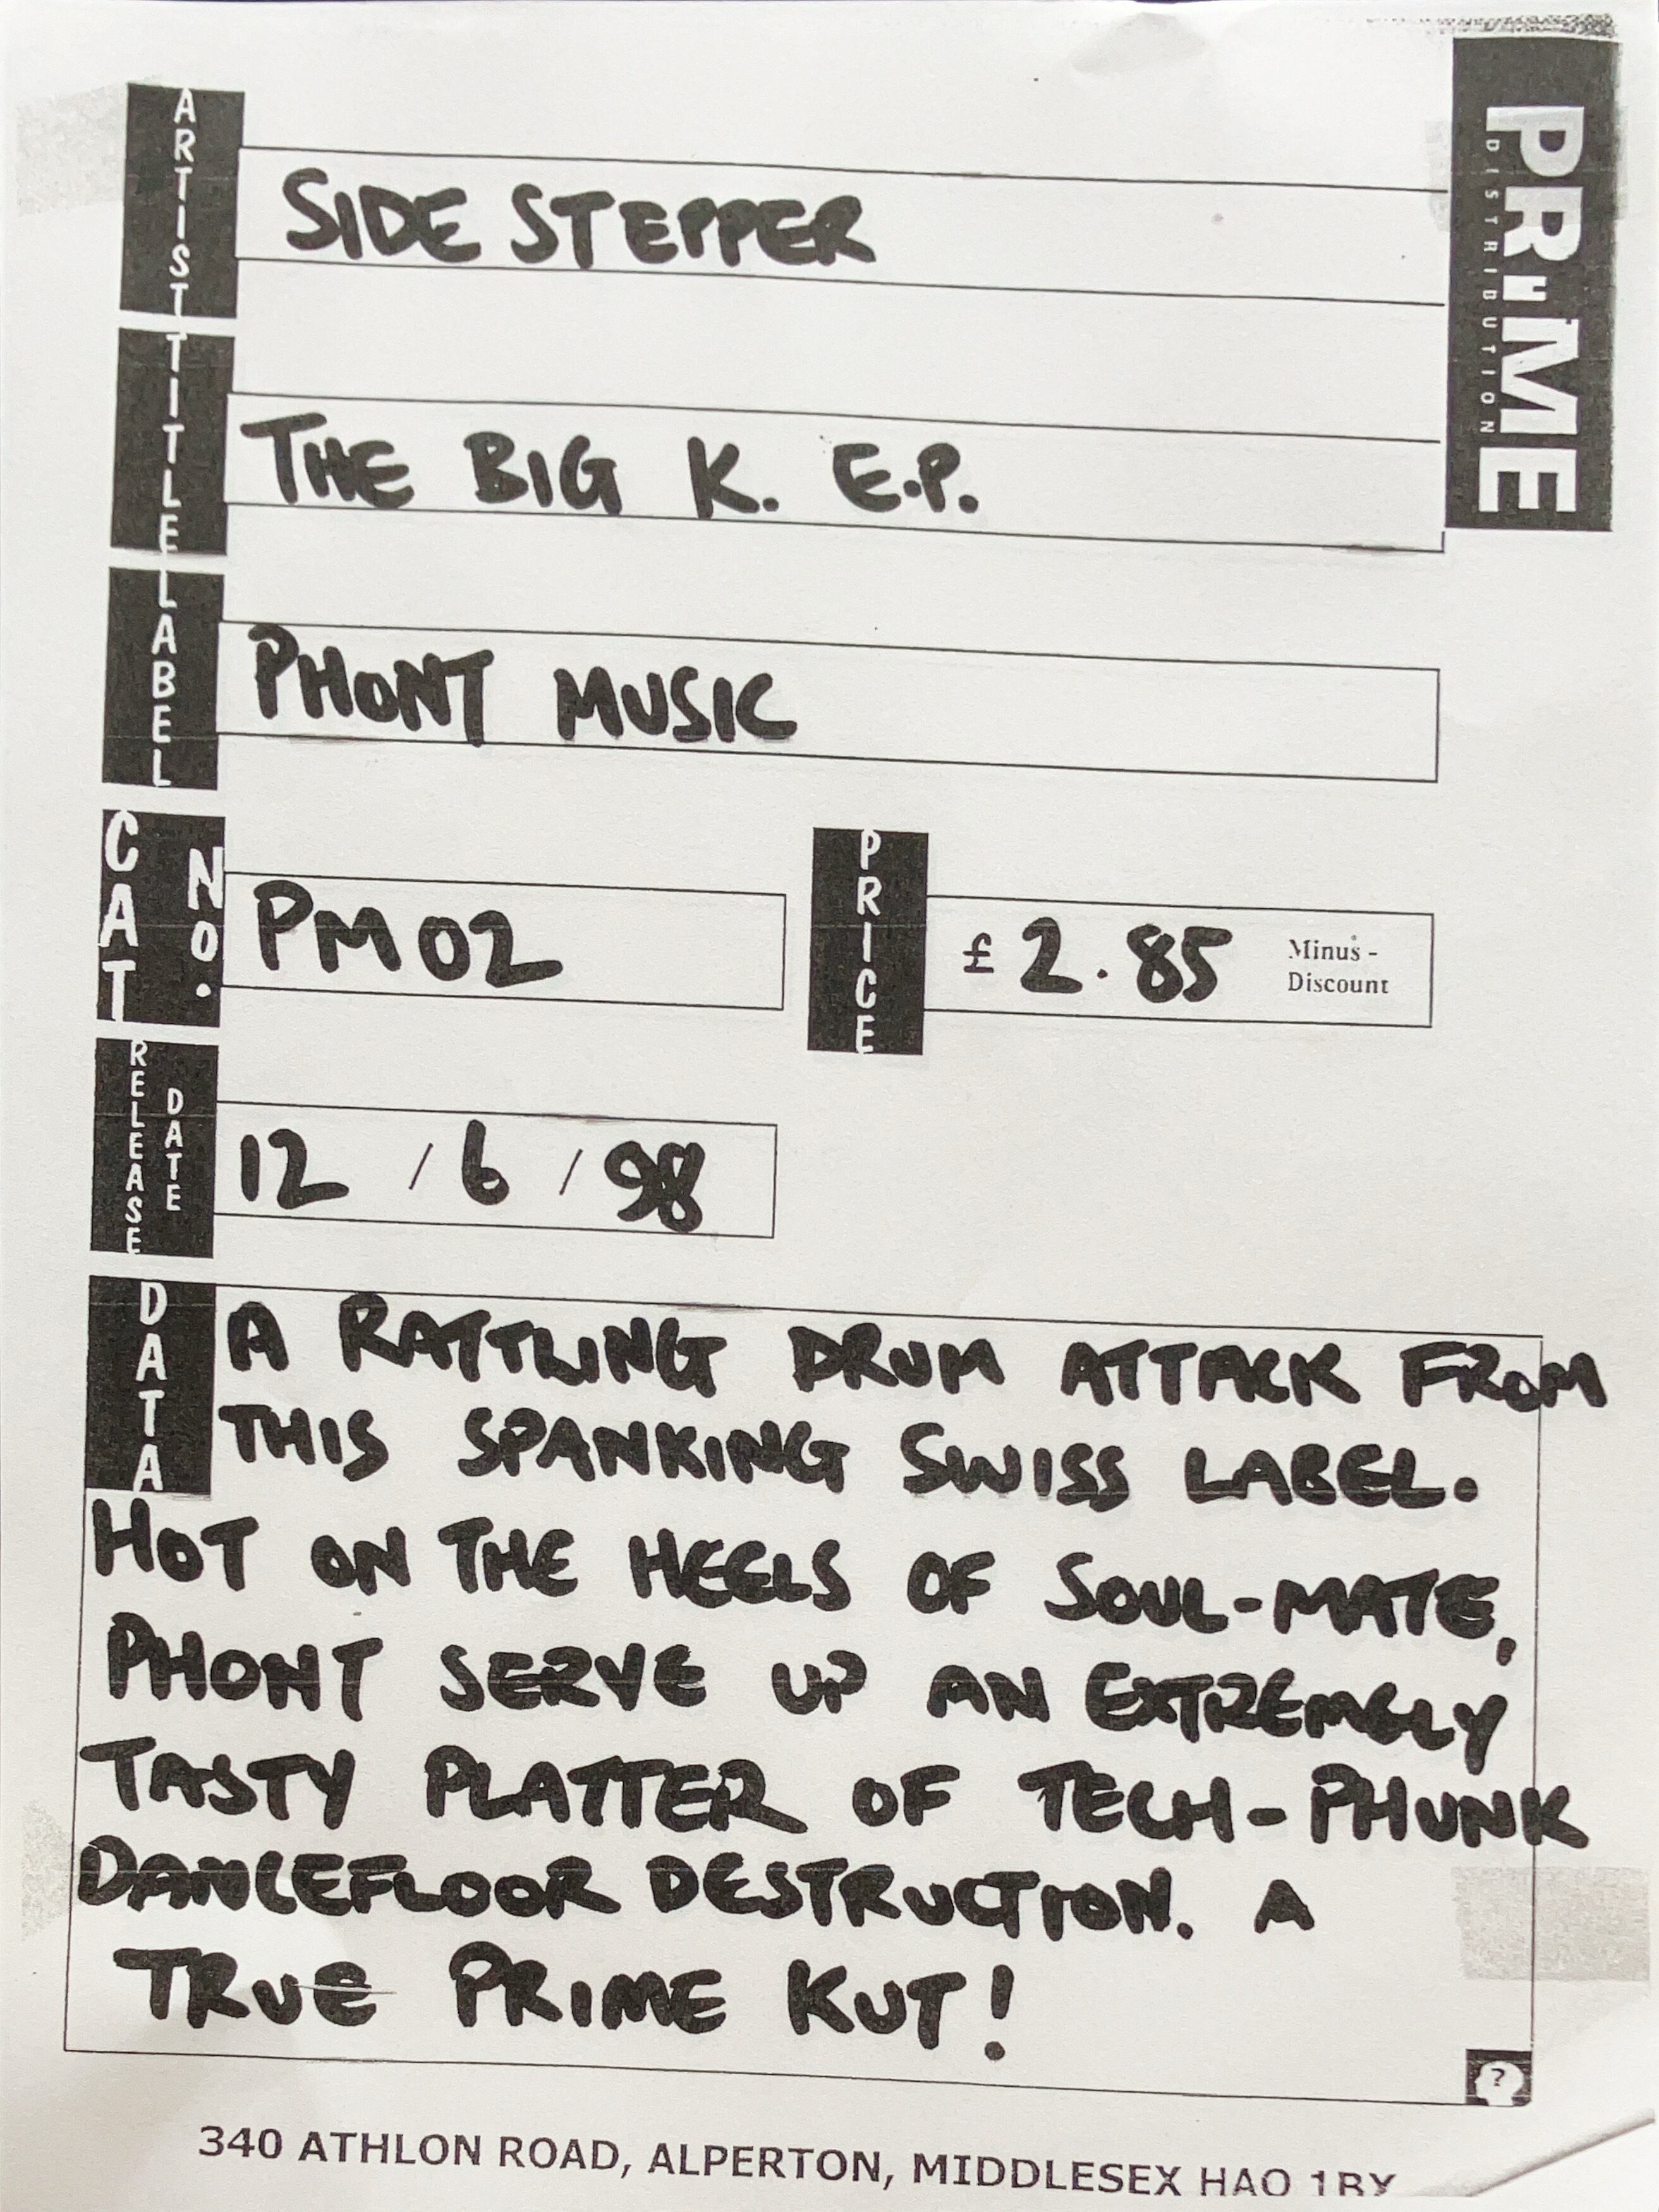 PRIME
DISTRIBUTION
ARTIST
SIDE STEPPER
TITLE
THE BIG K. E.P.
LABEL
PHONT MUSIC
CAT NO.
PM02
PRICE
£ 2.85 Minus -
Discount
RELEASE DATE
12 / 6 / 98
DATA
A RATTLING DRUM ATTACK FROM
THIS SPANKING SWISS LABEL.
HOT ON THE HEELS OF SOUL-MATE,
PHONT SERVE UP AN EXTREMELY
TASTY PLATTER OF TECH-PHUNK
DANCEFLOOR DESTRUCTION. A
TRUE PRIME KUT!
?
340 ATHLON ROAD, ALPERTON, MIDDLESEX HAO 1BY